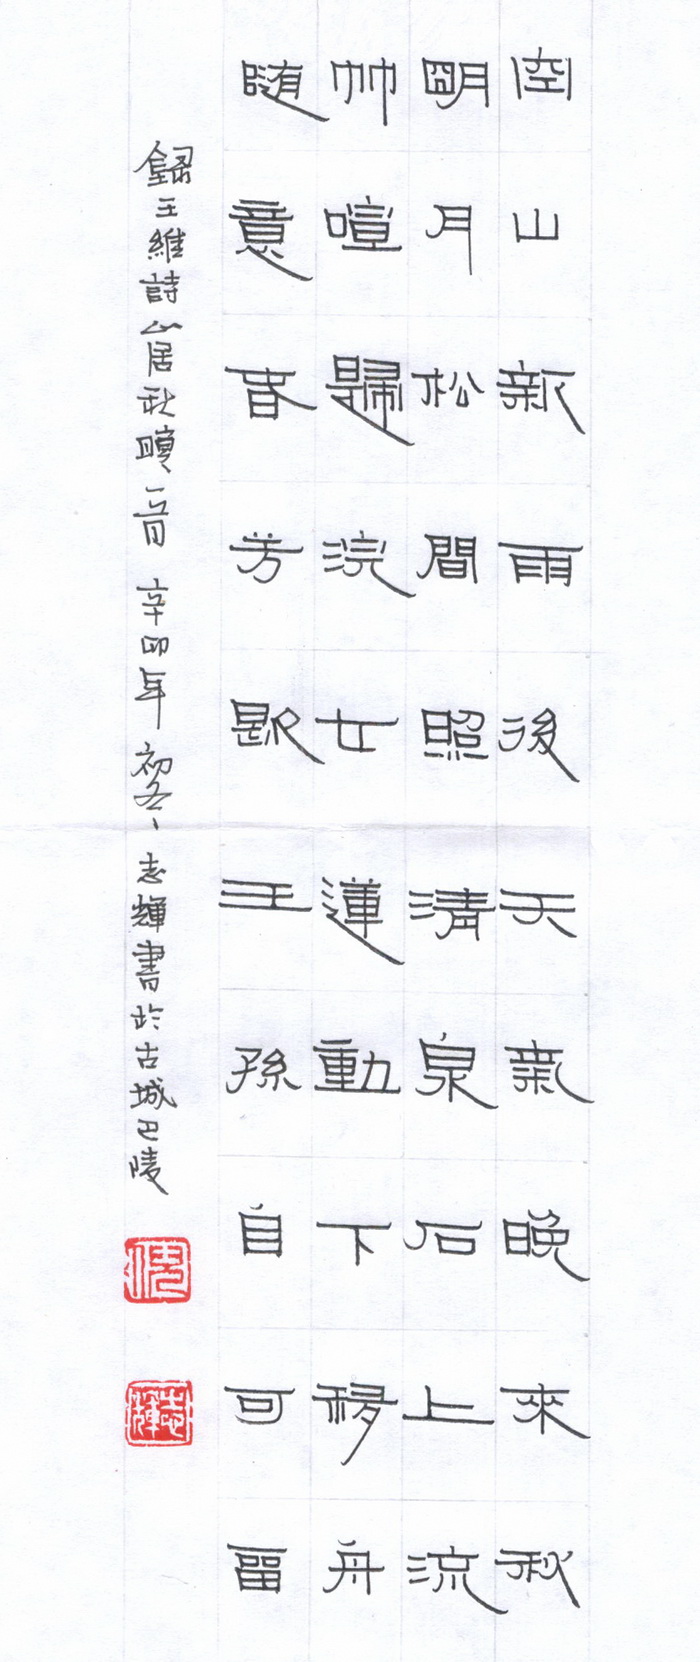 空山新雨後天氣晚來秋
明月松間照清泉石上流
竹喧歸浣女蓮動下移舟
隨意春芳歇王孫自可留
錄王維詩山居秋暝一首 辛卯年初冬、志輝書於古城巴陵
志輝